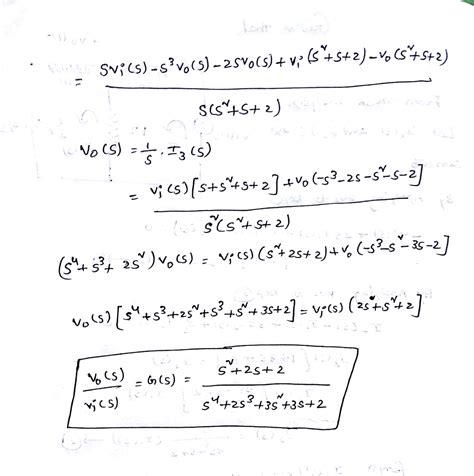 = SVi(S) - S³V₀(S) - 2SV₀(S) + Vi(S²+S+2) - V₀(S²+S+2) / S(S²+S+2)
V₀(S) = 1/S · I₃(S)
= Vi(S)[S+S²+S+2] + V₀(-S³-2S-S²-S-2] / S²(S²+S+2)
(S⁴+S³+2S²)V₀(S) = Vi(S)(S²+2S+2) + V₀(-S³-S²-3S-2]
V₀(S)[S⁴+S³+2S²+S³+S²+3S+2] = Vi(S)(2S²+S²+2]
V₀(S)/Vi(S) = G(S) = S²+2S+2 / S⁴+2S³+3S²+3S+2